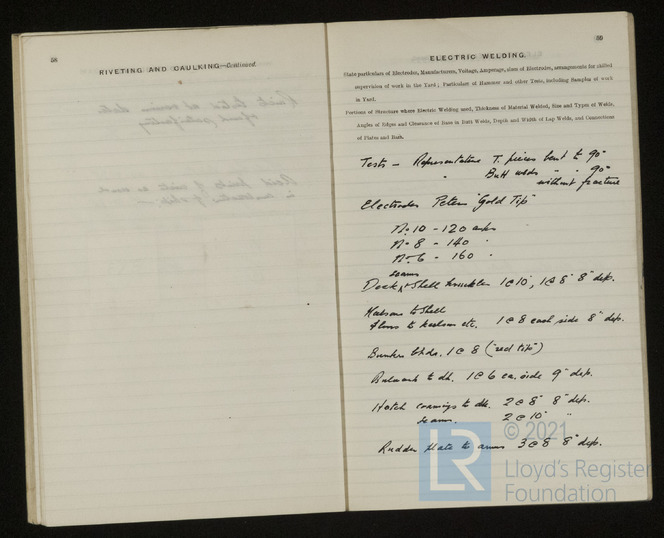 58
RIVETING AND CAULKING—Continued.
59
ELECTRIC WELDING.
State particulars of Electrodes, Manufacturers, Voltage, Amperage, sizes of Electrodes, arrangements for skilled
supervision of work in the Yard; Particulars of Hammer and other Tests, including Samples of work
in Yard.
Portions of Structure where Electric Welding used, Thickness of Material Welded, Size and Types of Welds,
Angles of Edges and Clearance of Bars in Butt Welds, Depth and Width of Lap Welds, and Connections
of Plates and Bars.
Tests — Representative T. pieces bent to 90°
" Butt welds " " 90°
without fracture
Electrodes Peters "Gold Tip"
No 10 - 120 amps
No 8 - 140 "
No 6 - 160 "
seams
Deck & Shell 1 @ 10", 1 @ 8" 8" dep.
Keelsons to Shell
Floors to keelson etc. 1 @ 8 each side 8" dep.
Bunker bhds. 1 @ 8 ("red tip")
Bulwark to dk. 1 @ 6 ea. side 9" dep.
Hatch coamings to dk. 2 @ 8" 8" dep.
seams. 2 @ 10" "
Rudder plate to arms 3 @ 8 8" dep.
© 2021
LR
Lloyd's Register
Foundation